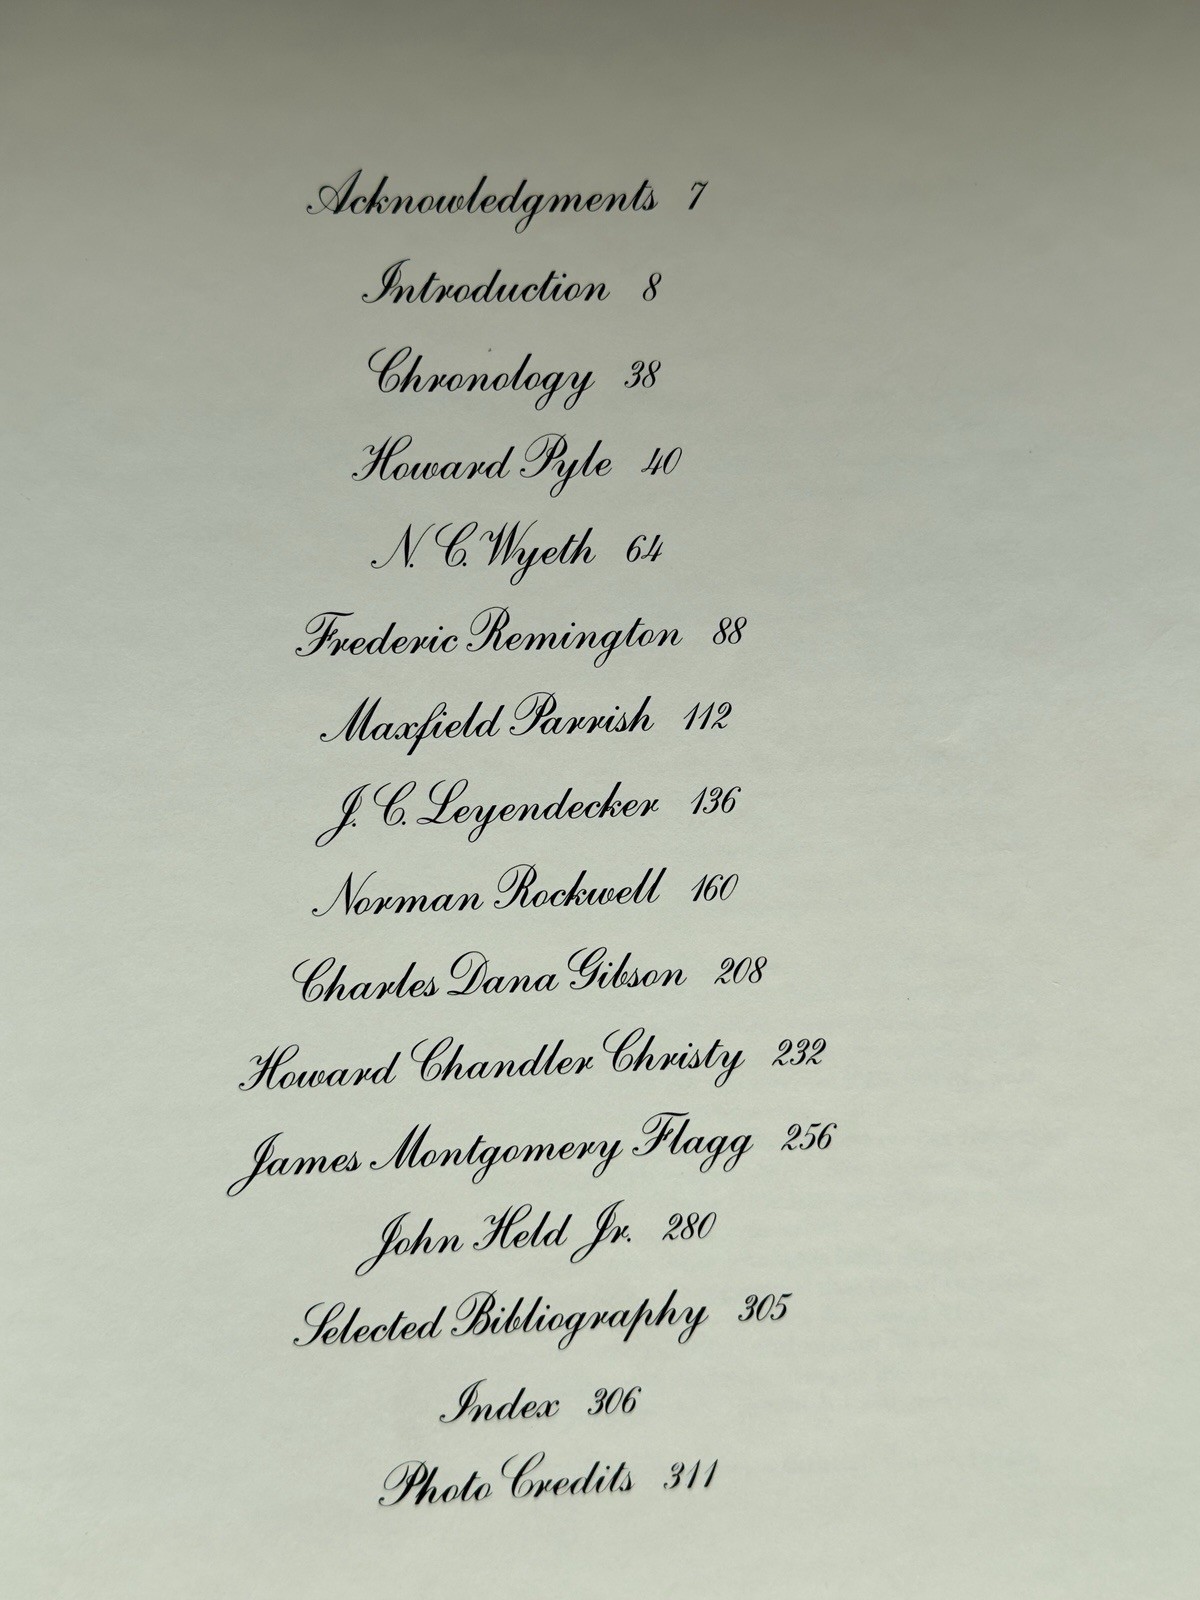 Acknowledgments 7
Introduction 8
Chronology 38
Howard Pyle 40
N. C. Wyeth 64
Frederic Remington 88
Maxfield Parrish 112
J. C. Leyendecker 136
Norman Rockwell 160
Charles Dana Gibson 208
Howard Chandler Christy 232
James Montgomery Flagg 256
John Held Jr. 280
Selected Bibliography 305
Index 306
Photo Credits 311